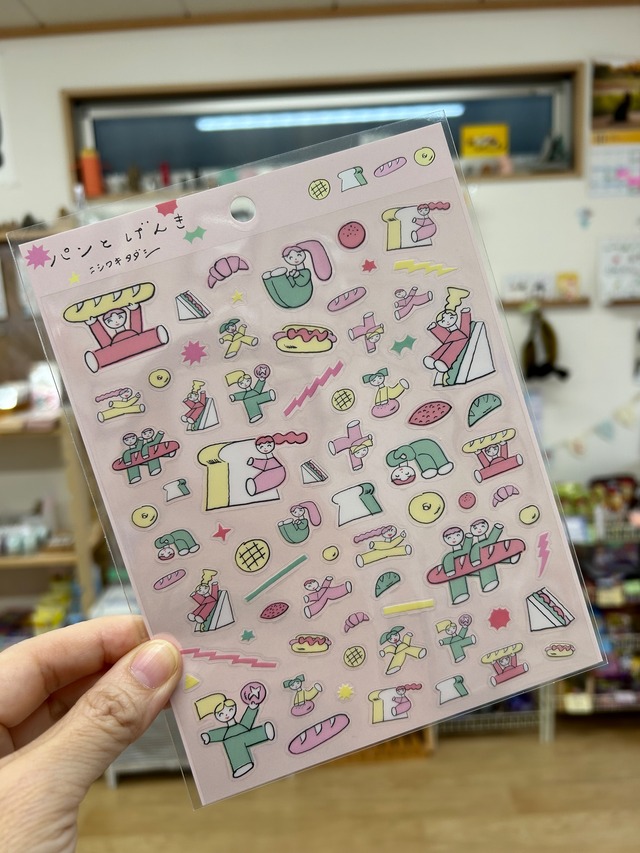 パンとげんき
ニシワキタダシ